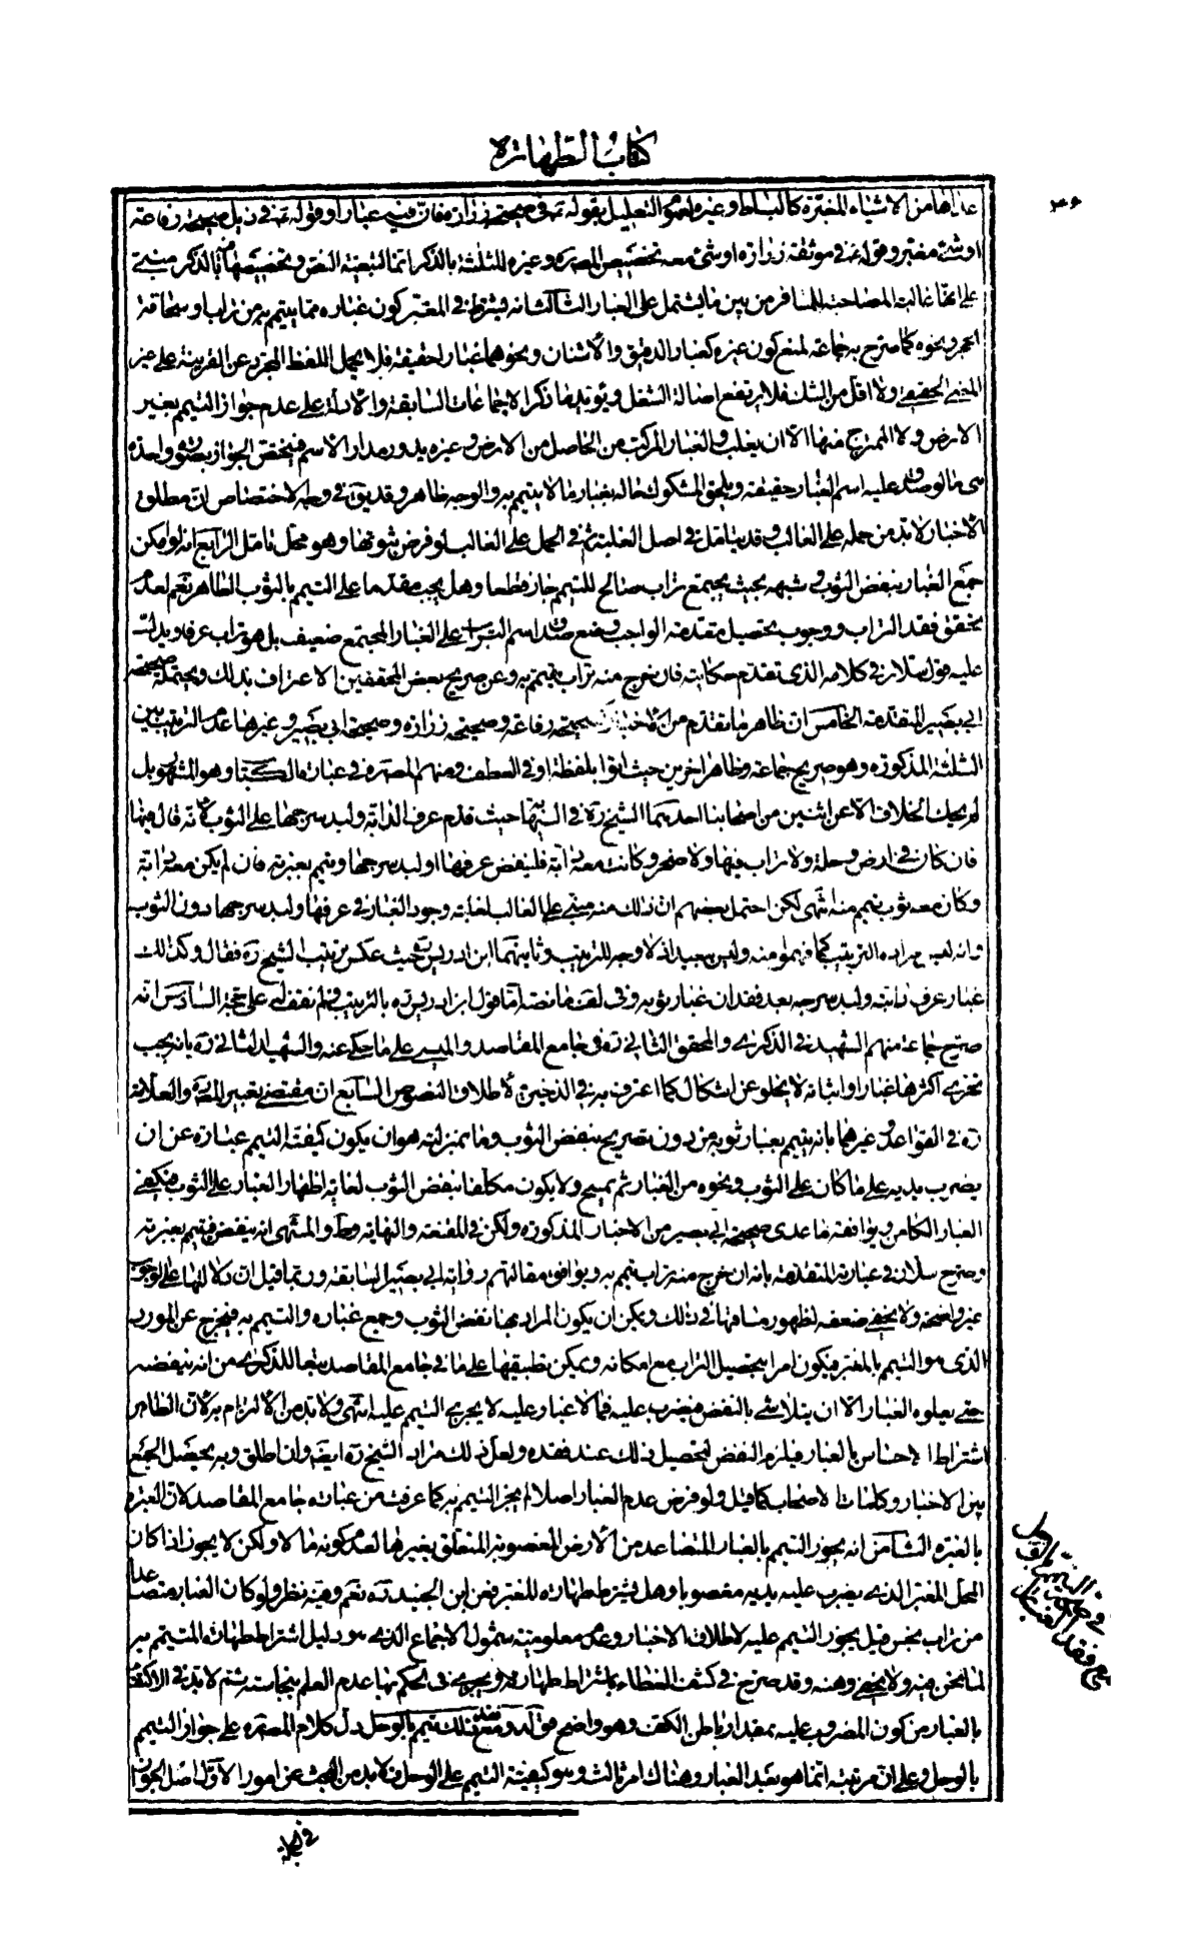 كتاب الطهارة
٣٦
من الاشياء المغبرة كالبساط وغيره لعموم التعليل بقوله ع في صحيحة زرارة فان فيه غبارا وقوله ع في ذيل صحيحة رفاعة
او شئ مغبر وقوله ع في موثقة زرارة او شئ معه تخصيص المص ره وغيره للثلثة بالذكر انما لتبعية النص وتخصيصها فيه بالذكر مبنى
على انها غالب المصاحب للمسافر من بين ما يشتمل على الغبار الثالث انه يشترط في المغبر كون غباره مما يتيمم به من تراب او سحاقة
الحجر ونحوه كما صرح به جماعة لمنع كون غيره كغبار الدقيق والاشنان ونحوهما غبارا حقيقة فلا يحمل اللفظ المجرد عن القرينة على غير
المعنى الحقيقي ولا اقل من الشك فلا يرتفع اصالة الشغل ويؤيده ما ذكر الاجماعات السابقة والادلة على عدم جواز التيمم بغير
الارض ولا الممتزج منها الا ان يغلب والغبار المركب من الحاصل من الارض وغيره يدور مدار الاسم فيختص الجواز بصورة واحدة
هى ما لو صدق عليه اسم الغبار حقيقة ويلحق المشكوك حاله بغبار ما لا يتيمم به والوجه ظاهر وقد يق في وجه الاختصاص ان مطلق
الاخبار لا بد من حمله على الغالب وقد يتامل في اصل الغلبة ثم في الحمل على الغالب لو فرض ثبوتها وهو محل تامل الرابع انه لو امكن
جمع الغبار بنفض الثوب وشبهه بحيث يجتمع تراب صالح للتيمم جاز قطعا وهل يجب مقدما على التيمم بالثوب الظاهر نعم لعدم
تحقق فقد التراب ووجوب تحصيل مقدمة الواجب ومنع صدق اسم التراب على الغبار المجتمع ضعيف بل هو تراب عرفا ويدل
عليه قول سلار في كلامه الذى تقدم حكايته فان خرج منه تراب يتيمم به وعن صريح بعض المحققين الاعتراف بذلك ويحتمله صحيحة
ابى بصير المتقدمة الخامس ان ظاهر ما تقدم من الاخبار كصحيحة رفاعة وصحيحة زرارة وصحيحة ابى بصير وغيرها عدم الترتيب بين
الثلثة المذكورة وهو صريح جماعة وظاهر اخرين حيث اتوا بلفظة او في العطف ومنهم المص ره في عبارة الكتاب وهو المشهور بل
لم يحك الخلاف الا عن اثنين من اصحابنا احدهما الشيخ ره في النهاية حيث قدم عرف الدابة ولبد سرجها على الثوب لانه قال فيها
فان كان في ارض وحلة ولا تراب فيها ولا صخر وكانت معه دابة فلينفض عرفها او لبد سرجها ويتيمم بغبرته فان لم يكن معه دابة
وكان معه ثوب تيمم منه انتهى لكن احتمل بعضهم ان ذلك منه مبنى على الغالب لغلبة وجود الغبار في عرفها ولبد سرجها دون الثوب
وانه ليس مراده الترتيب كما فهموا منه وليس ببعيد اذ لا وجه للترتيب وثانيهما ابن ادريس ره حيث عكس ترتيب الشيخ ره فقال وكذلك
غبار عرف دابته ولبد سرجه بعد فقدان غبار ثوبه وفى لف ما نصه اما قول ابن ادريس ره بالترتيب فلم نقف له على حجة السادس انه
صرح جماعة منهم الشهيد في الذكرى والمحقق الثاني ره في جامع المقاصد والميسي على ما حكى عنه والشهيد الثاني ره بانه يجب
تحرى اكثرها غبارا واثباته لا يخلو عن اشكال كما اعترف به في الذخيرة لاطلاق النصوص السابع ان مقتضى تعبير المص ره والعلامة
ره في القواعد وغيرهما بانه يتيمم بغبار ثوبه من دون تصريح بنفض الثوب وما بمنزلته هو ان يكون كيفية التيمم عبارة عن ان
يضرب يديه على ما كان على الثوب ونحوه من الغبار ثم يمسح ولا يكون مكلفا بنفض الثوب لغاية اظهار الغبار على الثوب فيكفى
الغبار الكامن ويوافقه ما عدى صحيحة ابى بصير من الاخبار المذكورة ولكن في المقنعة والنهاية وط والمنتهى انه ينفض فيتيمم بغبرته
وصرح سلار في عبارته المتقدمة بانه ان خرج منه تراب تيمم به ويوافق مقالتهم رواية ابى بصير السابقة وربما قيل ان دلالتها على الوجوب
غير واضحة ولا يخفى ضعفه لظهور مساقها في ذلك ويمكن ان يكون المراد بها نفض الثوب وجمع غباره والتيمم به فيخرج عن المورد
الذى هو التيمم بالمغبر فيكون امرا بتحصيل التراب مع امكانه ويمكن تطبيقها على ما في جامع المقاصد تبعا للذكرى من انه ينفضه
حتى يعلوه الغبار الا ان يتلاشى بالنفض فيضرب عليه فما لا غبار عليه لا يجرى التيمم عليه انتهى ولا بد من الالتزام به لان الظاهر
اشتراط الاحساس بالغبار فيلزم النفض لتحصيل ذلك عند فقده ولعل ذلك مراد الشيخ ره ايضا وان اطلق وبه يحصل الجمع
بين الاخبار وكلمات الاصحاب كما قيل ولو فرض عدم الغبار اصلا لم يجز التيمم به كما عرفت من عبارة جامع المقاصد لان العبرة
بالغبرة الثامن انه يجوز التيمم بالغبار المتصاعد من الارض المغصوبة المتعلق بغيرها لعدم كونه مالا ولكن لا يجوز اذا كان
المحل المغبر الذى يضرب عليه يديه مغصوبا وهل يشترط طهارة المغبر فعن ابن الجنيد ره نعم وفيه نظر ولو كان الغبار متصاعدا
من تراب نجس قيل يجوز التيمم عليه لاطلاق الاخبار وعدم معلومية شمول الاجماع الذى هو دليل اشتراط طهارة المتيمم به
لما نحن فيه ولا يخفى وهنه وقد صرح في كشف الغطاء باشتراط طهارته ويجزى في الحكم بها عدم العلم بنجاسته ثم لا بد في الاكتفاء
بالغبار من كون المضروب عليه بمقدار باطن الكف وهو واضح قوله ومع فقد ذلك يتيمم بالوحل دل كلام المص ره على جواز التيمم
بالوحل وعلى ان مرتبته انما هو بعد الغبار وهناك امر ثالث وهو كيفية التيمم على الوحل فلا بد من البحث عن امور الاول اصل الجواز
في التيمم بالوحل
مع فقد الغبار
في الجملة